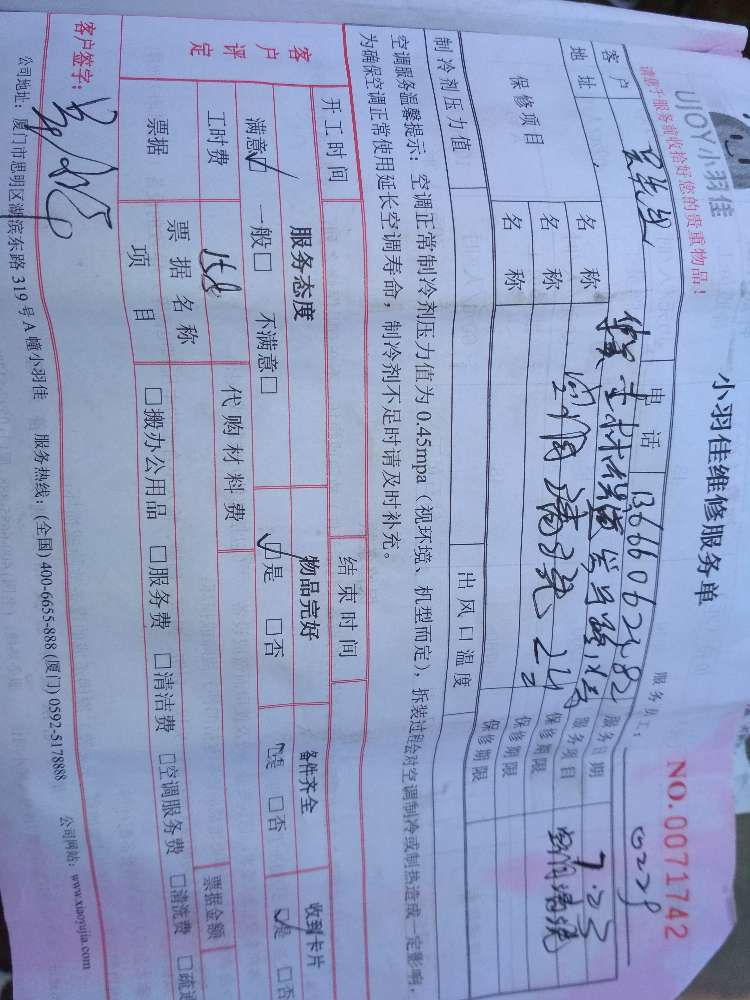 UJOY小羽佳
小羽佳维修服务单
NO.0071742
请您于服务前收拾好您的贵重物品！
服务员工：
客户
电话
服务日期 7.23
地址
服务项目
保修项目
名称
空调清洗
保修期限
名称
保修期限
名称
保修期限
制冷剂压力值
出风口温度
空调服务温馨提示：空调正常制冷剂压力值为0.45mpa（视环境、机型而定），拆装过程会对空调制冷或制热造成一定影响，
为确保空调正常使用延长空调寿命，制冷剂不足时请及时补充。
开工时间
结束时间
客户评定
服务态度
物品完好
备件齐全
收到卡片
满意☑ 一般□ 不满意□
☑是 □否
☑是 □否
☑是 □否
工时费
代购材料费
票据
票据名称
票据金额
项目
□搬办公用品 □服务费 □清洁费 □空调服务费 □清洗费 □疏通
客户签字：
公司地址：厦门市思明区湖滨东路319号A幢小羽佳 服务热线：(全国) 400-6655-888 (厦门) 0592-5178888 公司网站：www.xiaoyujia.com